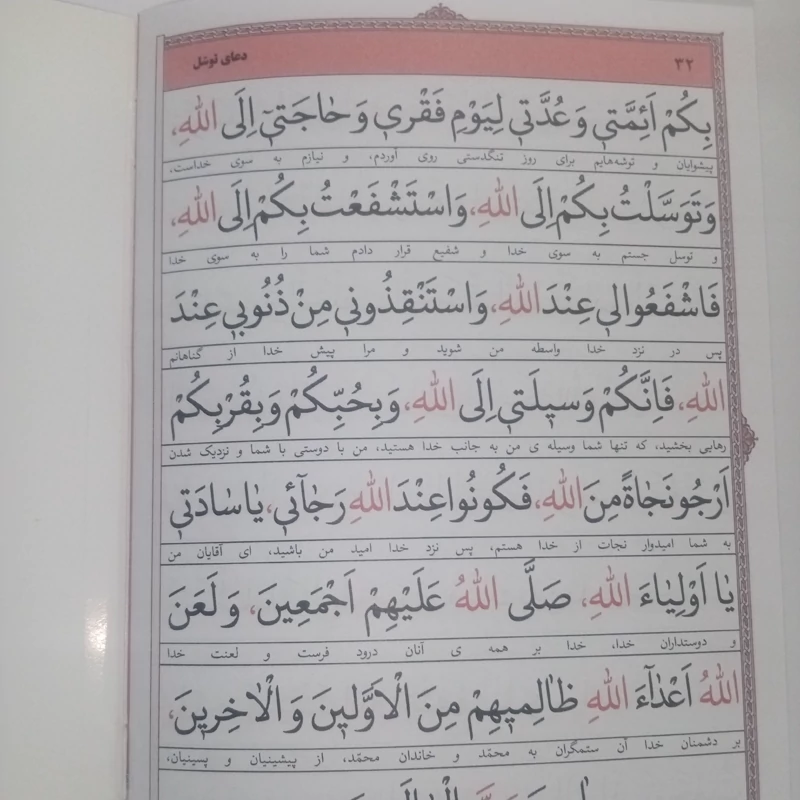 ۳۲ دعای توسّل
بِکُمْ اَئِمَّتی وَ عُدَّتی لِیَوْمِ فَقْری وَ حٰاجَتی اِلَی اللهِ،
پیشوایان و توشه‌هایم برای روز تنگدستی روی آوردم، و نیازم به سوی خداست،
وَ تَوَسَّلْتُ بِکُمْ اِلَی اللهِ، وَ اسْتَشْفَعْتُ بِکُمْ اِلَی اللهِ،
و توسل جستم به سوی خدا و شفیع قرار دادم شما را به سوی خدا
فَاشْفَعُوا لی عِنْدَ اللهِ، وَ اسْتَنْقِذُونی مِنْ ذُنُوبی عِنْدَ
پس در نزد خدا واسطه من شوید و مرا پیش خدا از گناهانم
اللهِ، فَاِنَّکُمْ وَسیلَتی اِلَی اللهِ، وَ بِحُبِّکُمْ وَ بِقُرْبِکُمْ
رهایی بخشید، که تنها شما وسیله ی من به جانب خدا هستید، من با دوستی با شما و نزدیک شدن
اَرْجُو نَجٰاةً مِنَ اللهِ، فَکُونُوا عِنْدَ اللهِ رَجٰآئی، یٰا سٰادَتی
به شما امیدوار نجات از خدا هستم، پس نزد خدا امید من باشید، ای آقایان من
یٰا اَوْلِیٰاءَ اللهِ، صَلَّی اللهُ عَلَیْهِمْ اَجْمَعِینَ، وَ لَعَنَ
و دوستداران خدا، خدا بر همه ی آنان درود فرست و لعنت خدا
اللهُ اَعْدٰآءَ اللهِ ظٰالِمیهِمْ مِنَ الْاَوَّلینَ وَ الْاٰخِرینَ،
بر دشمنان خدا آن ستمگران به محمّد و خاندان محمّد، از پیشینیان و پسینیان،